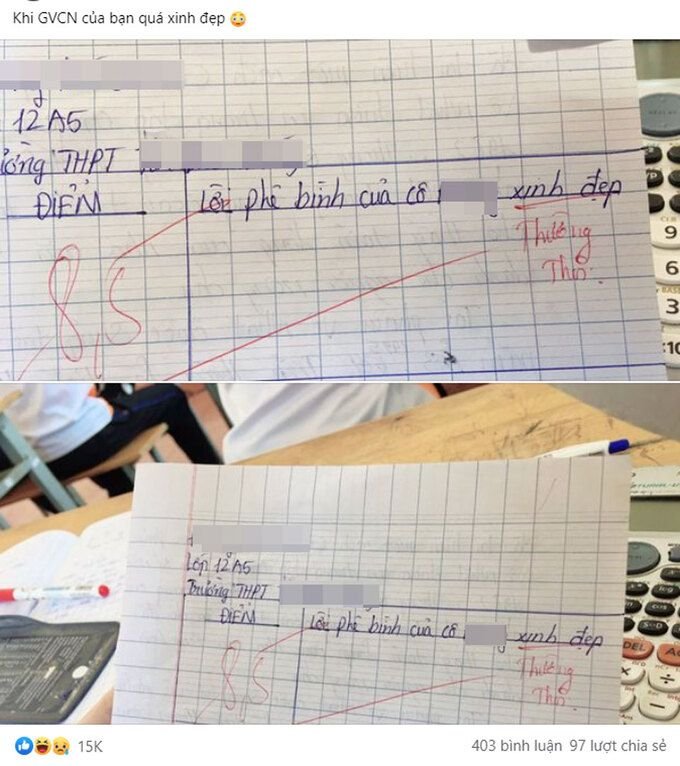 Khi GVCN của bạn quá xinh đẹp 😳
12A5
ường THPT
ĐIỂM
Lời phê bình của cô xinh đẹp
8,5
Thưởng
Thộ.
9
6
3
Lớp 12A5
Trường THPT
ĐIỂM
Lời phê bình của cô xinh đẹp
8,5
Thưởng
DEL
AC
15K
403 bình luận 97 lượt chia sẻ